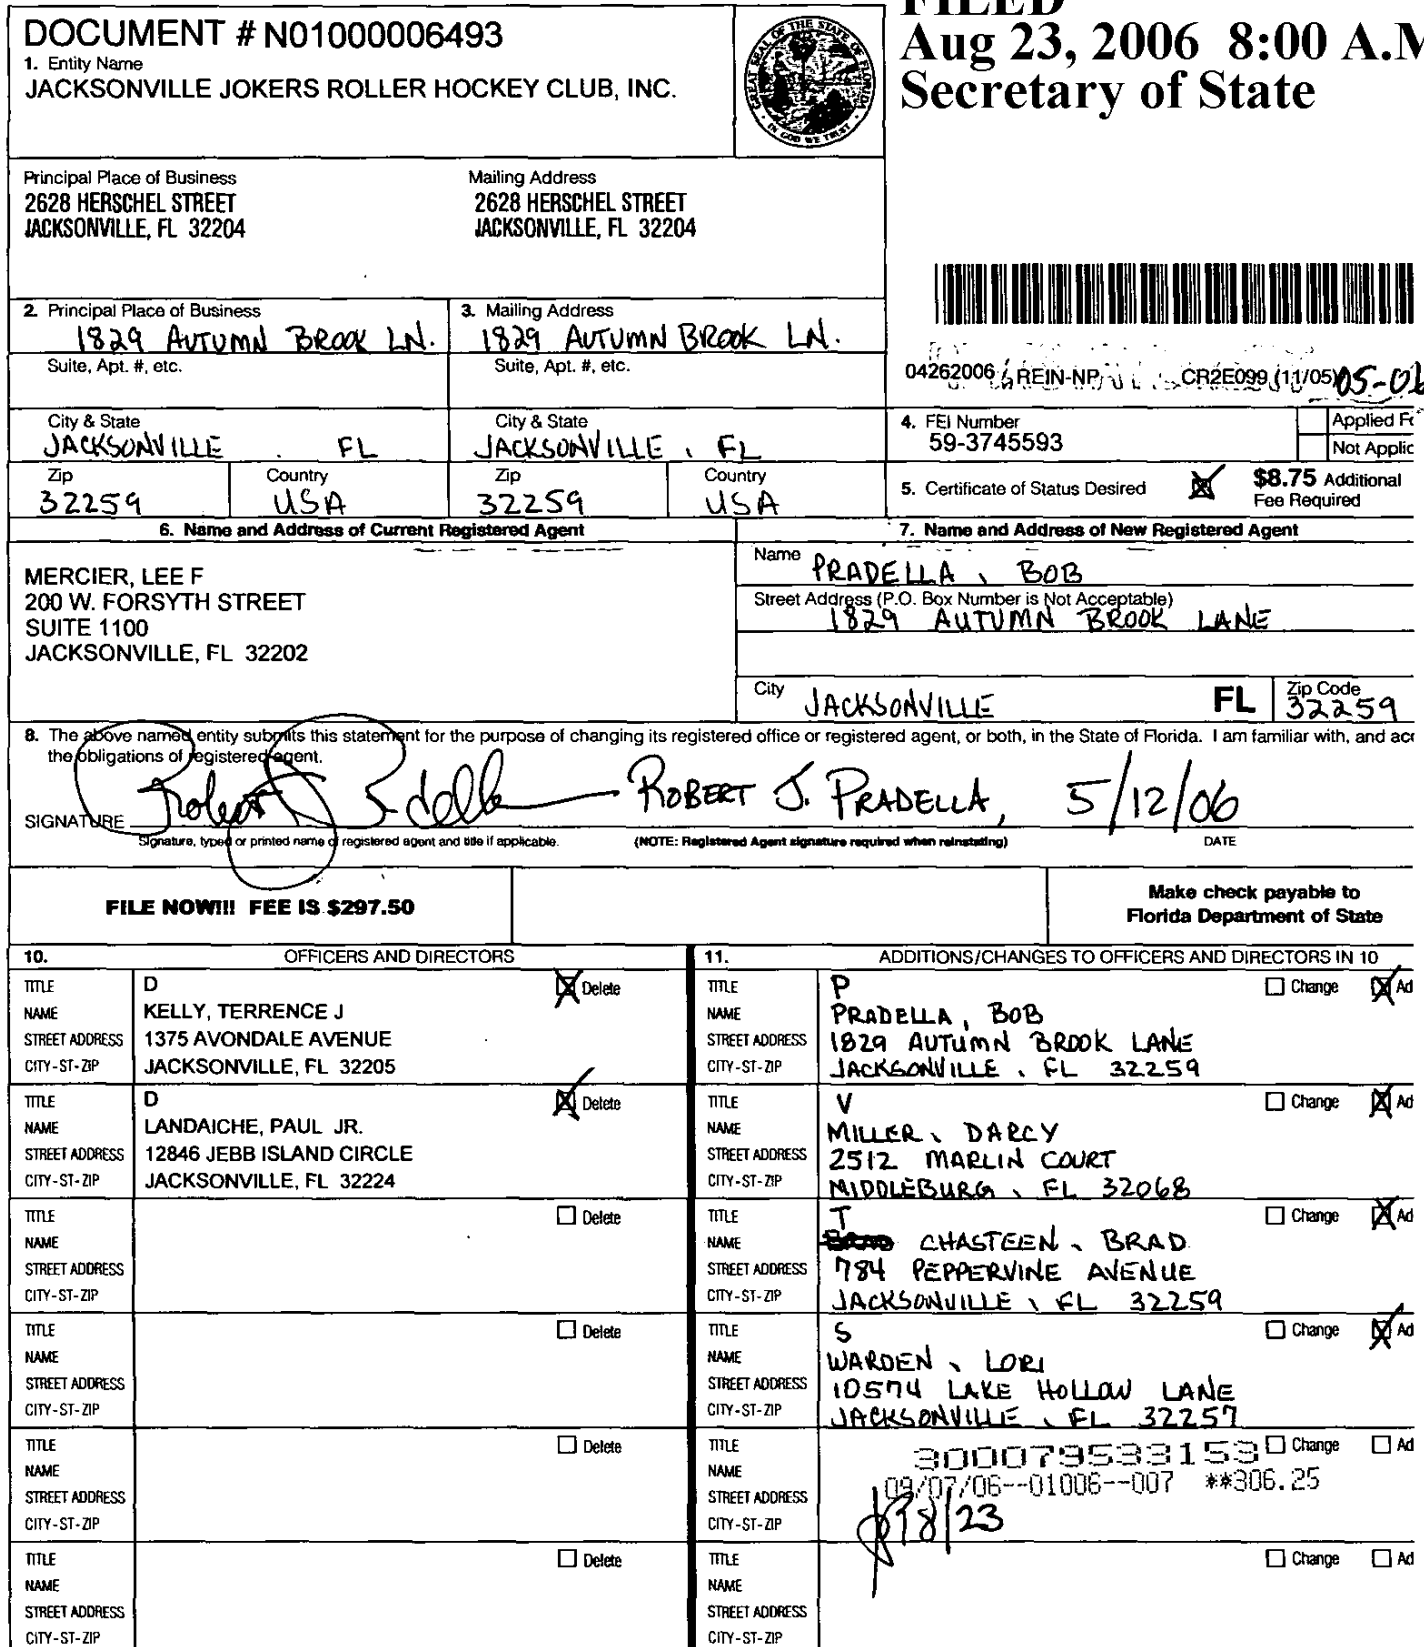 FILED
Aug 23, 2006 8:00 A.M
Secretary of State
DOCUMENT # N01000006493
1. Entity Name
JACKSONVILLE JOKERS ROLLER HOCKEY CLUB, INC.
GREAT SEAL OF THE STATE OF FLORIDA
IN GOD WE TRUST
Principal Place of Business
2628 HERSCHEL STREET
JACKSONVILLE, FL 32204
Mailing Address
2628 HERSCHEL STREET
JACKSONVILLE, FL 32204
2. Principal Place of Business
1829 AUTUMN BROOK LN.
Suite, Apt. #, etc.
City & State
JACKSONVILLE , FL
Zip
32259
Country
USA
3. Mailing Address
1829 AUTUMN BROOK LN.
Suite, Apt. #, etc.
City & State
JACKSONVILLE , FL
Zip
32259
Country
USA
04262006 REIN-NP CR2E099 (11/05) 05-06
4. FEI Number
59-3745593
Applied Fo
Not Applic
5. Certificate of Status Desired
$8.75 Additional
Fee Required
6. Name and Address of Current Registered Agent
MERCIER, LEE F
200 W. FORSYTH STREET
SUITE 1100
JACKSONVILLE, FL 32202
7. Name and Address of New Registered Agent
Name PRADELLA, BOB
Street Address (P.O. Box Number is Not Acceptable)
1829 AUTUMN BROOK LANE
City JACKSONVILLE FL Zip Code 32259
8. The above named entity submits this statement for the purpose of changing its registered office or registered agent, or both, in the State of Florida. I am familiar with, and acc
the obligations of registered agent.
SIGNATURE Robert J. Pradella ROBERT J. PRADELLA, 5/12/06
Signature, typed or printed name of registered agent and title if applicable. (NOTE: Registered Agent signature required when reinstating) DATE
FILE NOW!!! FEE IS $297.50
Make check payable to
Florida Department of State
10. OFFICERS AND DIRECTORS
TITLE D Delete
NAME KELLY, TERRENCE J
STREET ADDRESS 1375 AVONDALE AVENUE
CITY-ST-ZIP JACKSONVILLE, FL 32205
TITLE D Delete
NAME LANDAICHE, PAUL JR.
STREET ADDRESS 12846 JEBB ISLAND CIRCLE
CITY-ST-ZIP JACKSONVILLE, FL 32224
TITLE Delete
NAME
STREET ADDRESS
CITY-ST-ZIP
TITLE Delete
NAME
STREET ADDRESS
CITY-ST-ZIP
TITLE Delete
NAME
STREET ADDRESS
CITY-ST-ZIP
TITLE Delete
NAME
STREET ADDRESS
CITY-ST-ZIP
11. ADDITIONS/CHANGES TO OFFICERS AND DIRECTORS IN 10
TITLE P Change Ad
NAME PRADELLA, BOB
STREET ADDRESS 1829 AUTUMN BROOK LANE
CITY-ST-ZIP JACKSONVILLE, FL 32259
TITLE V Change Ad
NAME MILLER, DARCY
STREET ADDRESS 2512 MARLIN COURT
CITY-ST-ZIP MIDDLEBURG, FL 32068
TITLE T Change Ad
NAME BRAD CHASTEEN, BRAD
STREET ADDRESS 784 PEPPERVINE AVENUE
CITY-ST-ZIP JACKSONVILLE, FL 32259
TITLE S Change Ad
NAME WARDEN, LORI
STREET ADDRESS 10574 LAKE HOLLOW LANE
CITY-ST-ZIP JACKSONVILLE, FL 32257
TITLE 300079533153 Change Ad
NAME 09/07/06--01006--007 **306.25
STREET ADDRESS 8/23
CITY-ST-ZIP
TITLE Change Ad
NAME
STREET ADDRESS
CITY-ST-ZIP